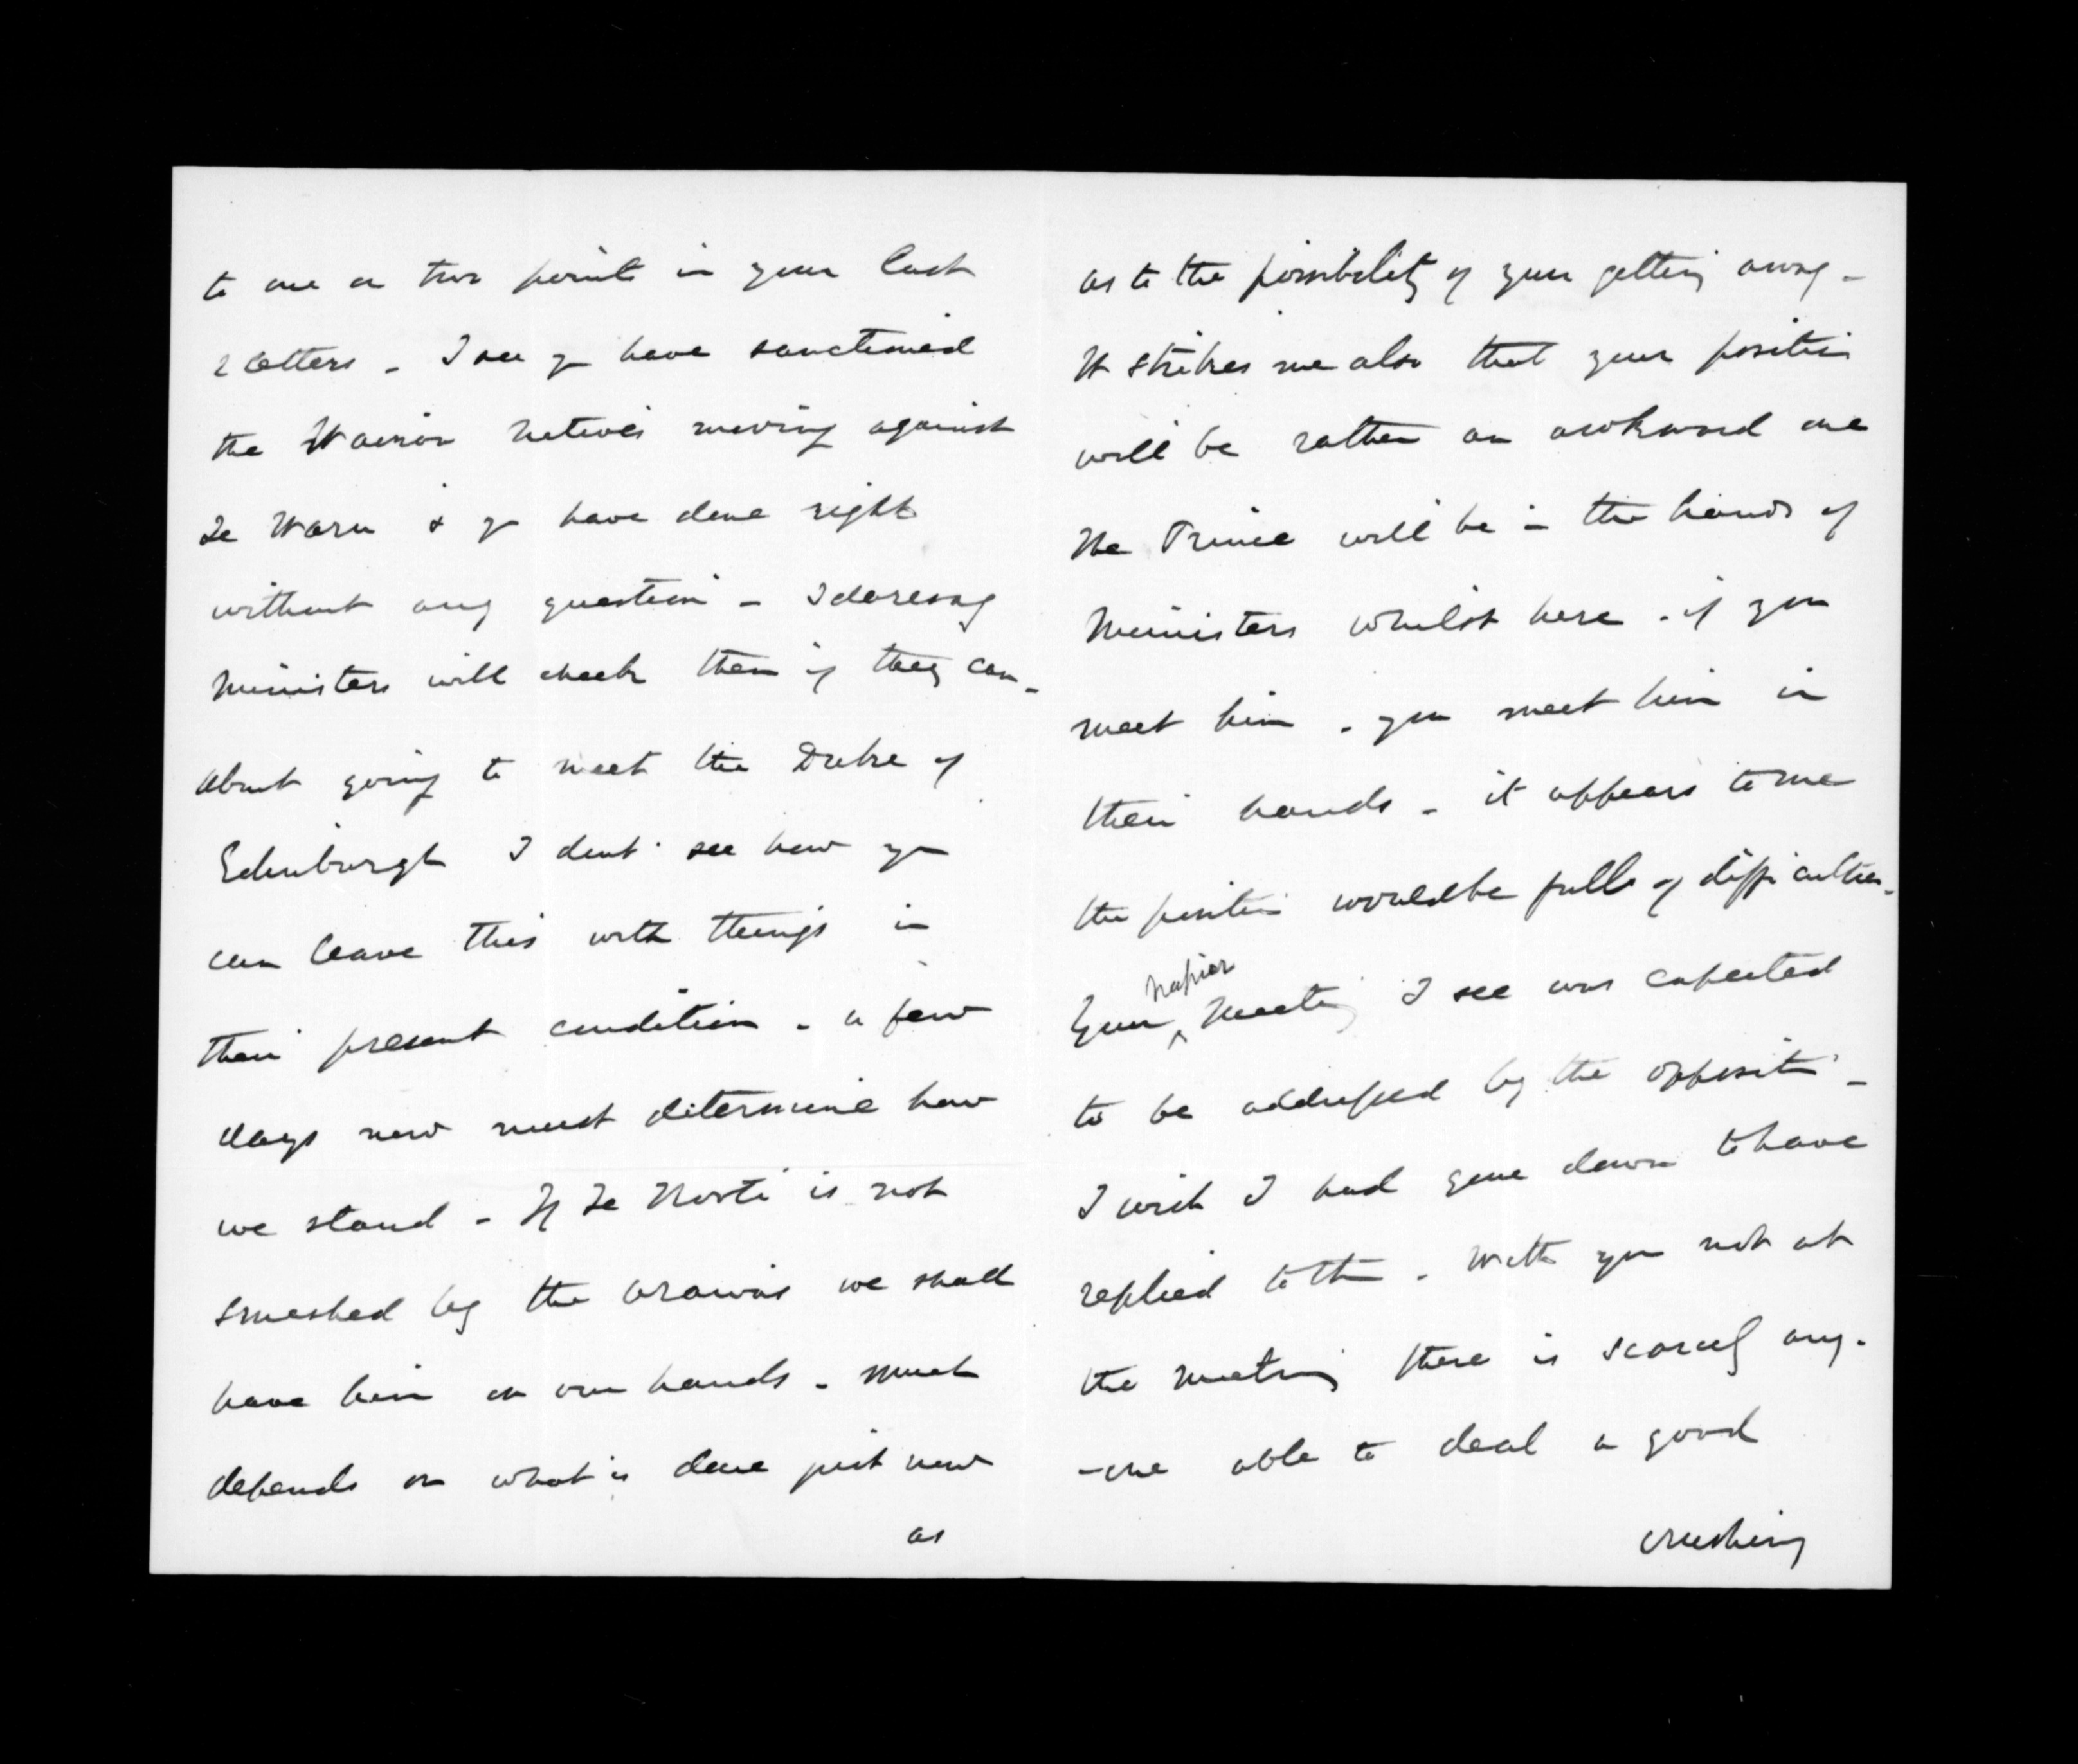 to one or two points in your last
2 letters - I see yr have sanctioned
the Wairoa natives moving against
Te Waru & yr have done right
without any question - I daresay
Ministers will check them if they can -
About going to meet the Duke of
Edinburgh I dont see how yr
can leave this with things in
their present condition - a few
days now must determine how
we stand - If Te Kooti is not
smashed by the Arawas we shall
have him on our hands - Much
depends on what is done just now
as
as to the possibility of your getting away -
It strikes me also that your position
will be rather an awkward one
The Prince will be in the hands of
Ministers whilst here - if you
meet him - you meet him in
their hands - it appears to me
the position would be full of difficulties -
Napier
Your ^ Meeting I see was expected
to be addressed by the opposition -
I wish I had gone down to have
replied to them - With you not at
the meeting there is scarcely any-
-one able to deal a good
crushing